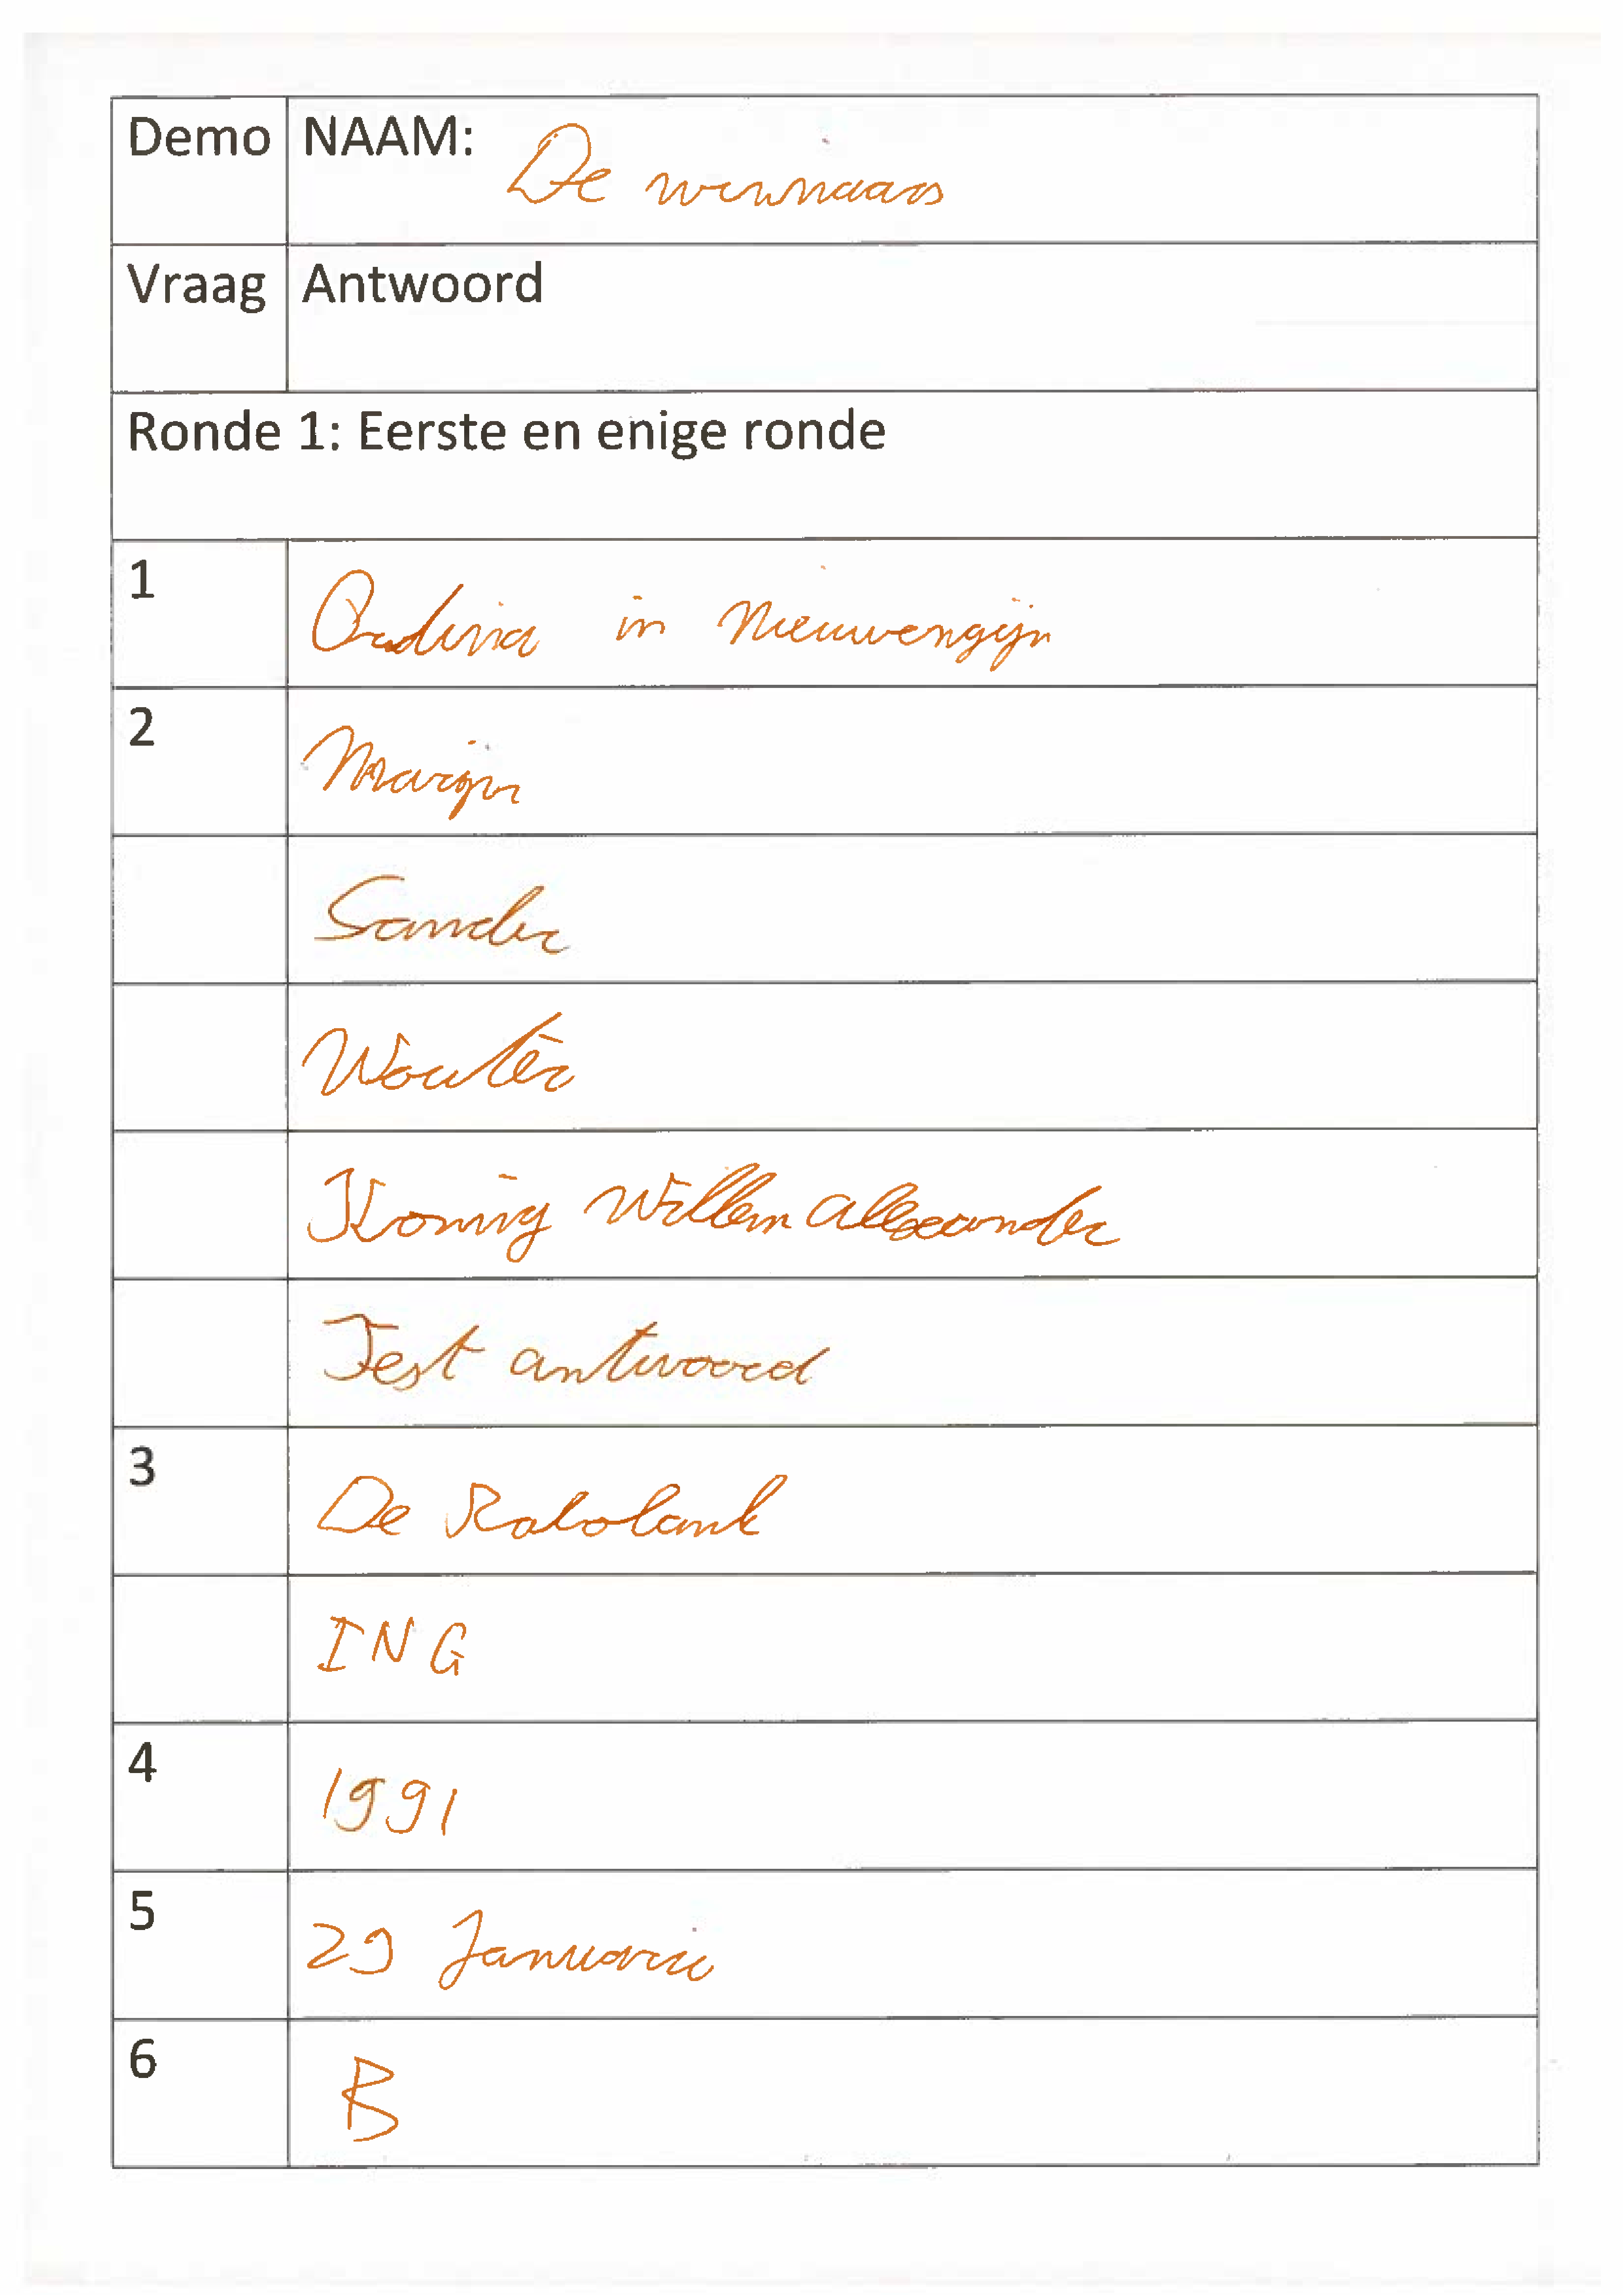 Demo NAAM: De winnaars
Vraag Antwoord
Ronde 1: Eerste en enige ronde
1 Oudvia in Nieuwengijn
2 Marijn
Sander
Wouter
Koning Willem Alexander
Test antwoord
3 De Rabobank
ING
4 1991
5 29 Januari
6 B